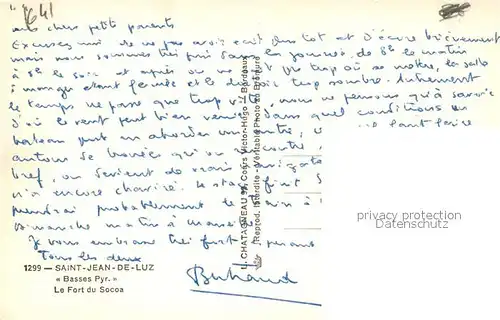 641
mes chers petits parents
Excusez moi de ne pas avoir écrit plus tot et d'écrire brièvement
mais nous sommes très pris dans la journée, de 8h le matin
à 8h le soir et après on ne sait pas trop où se mettre, la salle
à manger étant fermée et le dortoir trop sombre. Autrement
le temps ne passe que trop vite, nous ne pensons qu'à savoir
d'où le vent peut bien venir, dans quel conditions un
bateau peut en aborder un autre, faire
autour de bouées qu'on rencontre
bref, on devient de vrais
n'a encore chaviré. Le stage finit
prendrai probablement le train à
Dimanche matin à
Je vous embrasse très fort
Tous les deux
Bertrand
1299 — SAINT-JEAN-DE-LUZ
« Basses Pyr. »
Le Fort du Socoa
L. CHATAGNEAU 99, Cours Victor-Hugo - Bordeaux
Reprod. Interdite - Véritable Photo au Bromure
privacy protection
Datenschutz